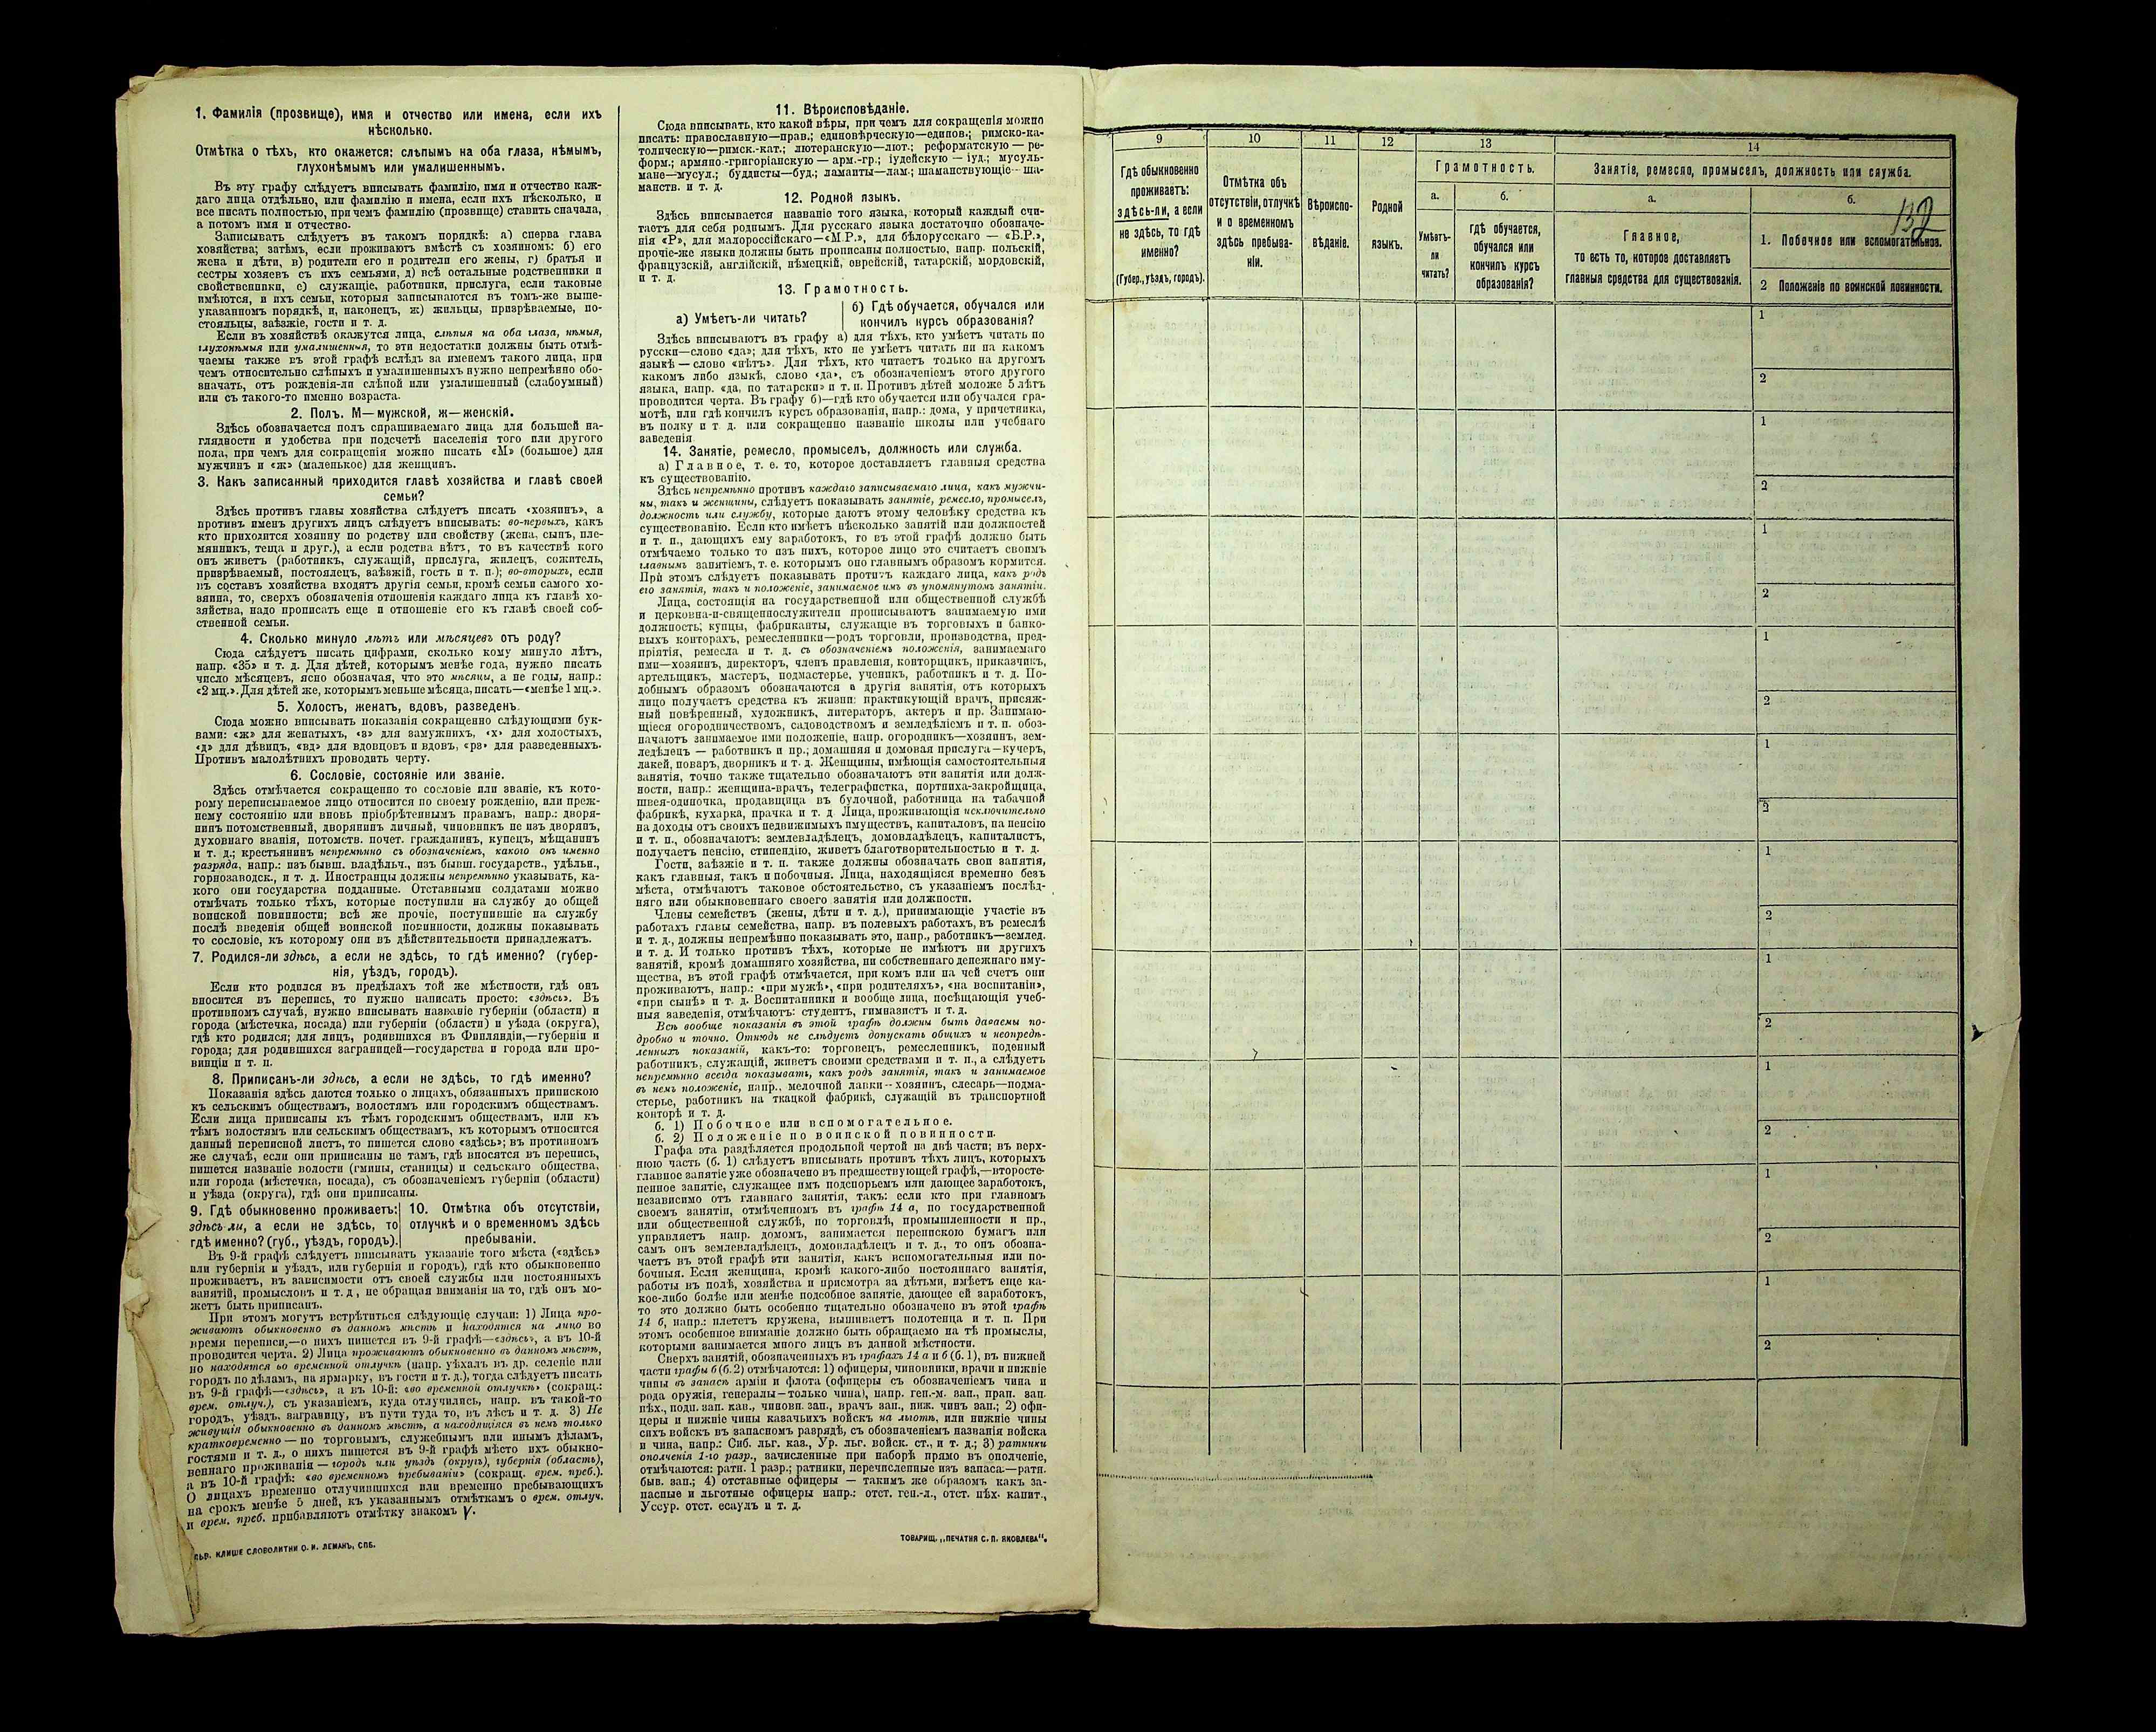 1. Фамилія (прозвище), имя и отчество или имена, если ихъ
нѣсколько.
Отмѣтка о тѣхъ, кто окажется: слѣпымъ на оба глаза, нѣмымъ,
глухонѣмымъ или умалишеннымъ.
Въ эту графу слѣдуетъ вписывать фамилію, имя и отчество каж-
даго лица отдѣльно, или фамилію и имена, если ихъ нѣсколько, и
все писать полностью, при чемъ фамилію (прозвище) ставить сначала,
а потомъ имя и отчество.
Записывать слѣдуетъ въ такомъ порядкѣ: а) сперва глава
хозяйства; затѣмъ, если проживаютъ вмѣстѣ съ хозяиномъ: б) его
жена и дѣти, в) родители его и родители его жены, г) братья и
сестры хозяевъ съ ихъ семьями, д) всѣ остальные родственники и
свойственники, е) служащіе, работники, прислуга, если таковые
имѣются, и ихъ семьи, которыя записываются въ томъ-же выше-
указанномъ порядкѣ, и, наконецъ, ж) жильцы, призрѣваемые, по-
стояльцы, заѣзжіе, гости и т. д.
Если въ хозяйствѣ окажутся лица, слѣпыя на оба глаза, нѣмыя,
глухонѣмыя или умалишенныя, то эти недостатки должны быть отмѣ-
чаемы также въ этой графѣ вслѣдъ за именемъ такого лица, при
чемъ относительно слѣпыхъ и умалишенныхъ нужно непремѣнно обо-
значать, отъ рожденія-ли слѣпой или умалишенный (слабоумный)
или съ такого-то именно возраста.
2. Полъ. М—мужской, ж—женскій.
Здѣсь обозначается полъ спрашиваемаго лица для большей на-
глядности и удобства при подсчетѣ населенія того или другого
пола, при чемъ для сокращенія можно писать «М» (большое) для
мужчинъ и «ж» (маленькое) для женщинъ.
3. Какъ записанный приходится главѣ хозяйства и главѣ своей
семьи?
Здѣсь противъ главы хозяйства слѣдуетъ писать «хозяинъ», а
противъ именъ другихъ лицъ слѣдуетъ вписывать: во-первыхъ, какъ
кто приходится хозяину по родству или свойству (жена, сынъ, пле-
мянникъ, теща и друг.), а если родства нѣтъ, то въ качествѣ кого
онъ живетъ (работникъ, служащій, прислуга, жилецъ, сожитель,
призрѣваемый, постоялецъ, заѣзжій, гость и т. п.); во-вторыхъ, если
въ составъ хозяйства входятъ другія семьи, кромѣ семьи самого хо-
зяина, то, сверхъ обозначенія отношенія каждаго лица къ главѣ хо-
зяйства, надо прописать еще и отношеніе его къ главѣ своей соб-
ственной семьи.
4. Сколько минуло лѣтъ или мѣсяцевъ отъ роду?
Сюда слѣдуетъ писать цифрами, сколько кому минуло лѣтъ,
напр. «35» и т. д. Для дѣтей, которымъ менѣе года, нужно писать
число мѣсяцевъ, ясно обозначая, что это мѣсяцы, а не годы, напр.:
«2 мц.». Для дѣтей же, которымъ меньше мѣсяца, писать—«менѣе 1 мц.».
5. Холостъ, женатъ, вдовъ, разведенъ.
Сюда можно вписывать показанія сокращенно слѣдующими бук-
вами: «ж» для женатыхъ, «з» для замужнихъ, «х» для холостыхъ,
«д» для дѣвицъ, «вд» для вдовцовъ и вдовъ, «рз» для разведенныхъ.
Противъ малолѣтнихъ проводить черту.
6. Сословіе, состояніе или званіе.
Здѣсь отмѣчается сокращенно то сословіе или званіе, къ кото-
рому переписываемое лицо относится по своему рожденію, или преж-
нему состоянію или вновь пріобрѣтеннымъ правамъ, напр.: дворя-
нинъ потомственный, дворянинъ личный, чиновникъ не изъ дворянъ,
духовнаго званія, потомств. почет. гражданинъ, купецъ, мѣщанинъ
и т. д.; крестьянинъ непремѣнно съ обозначеніемъ, какого онъ именно
разряда, напр.: изъ бывш. владѣльч., изъ бывш. государств., удѣльн.,
горнозаводск., и т. д. Иностранцы должны непремѣнно указывать, ка-
кого они государства подданные. Отставными солдатами можно
отмѣчать только тѣхъ, которые поступили на службу до общей
воинской повинности; всѣ же прочіе, поступившіе на службу
послѣ введенія общей воинской повинности, должны показывать
то сословіе, къ которому они въ дѣйствительности принадлежатъ.
7. Родился-ли здѣсь, а если не здѣсь, то гдѣ именно? (губер-
нія, уѣздъ, городъ).
Если кто родился въ предѣлахъ той же мѣстности, гдѣ онъ
вносится въ перепись, то нужно написать просто: «здѣсь». Въ
противномъ случаѣ, нужно вписывать названіе губерніи (области) и
города (мѣстечка, посада) или губерніи (области) и уѣзда (округа),
гдѣ кто родился; для лицъ, родившихся въ Финляндіи,—губерніи и
города; для родившихся заграницей—государства и города или про-
винціи и т. п.
8. Приписанъ-ли здѣсь, а если не здѣсь, то гдѣ именно?
Показанія здѣсь даются только о лицахъ, обязанныхъ припискою
къ сельскимъ обществамъ, волостямъ или городскимъ обществамъ.
Если лица приписаны къ тѣмъ городскимъ обществамъ, или къ
тѣмъ волостямъ или сельскимъ обществамъ, къ которымъ относится
данный переписной листъ, то пишется слово «здѣсь»; въ противномъ
же случаѣ, если они приписаны не тамъ, гдѣ вносятся въ перепись,
пишется названіе волости (гмины, станицы) и сельскаго общества,
или города (мѣстечка, посада), съ обозначеніемъ губерніи (области)
и уѣзда (округа), гдѣ они приписаны.
9. Гдѣ обыкновенно проживаетъ:
здѣсь-ли, а если не здѣсь, то
гдѣ именно? (губ., уѣздъ, городъ).
10. Отмѣтка объ отсутствіи,
отлучкѣ и о временномъ здѣсь
пребываніи.
Въ 9-й графѣ слѣдуетъ вписывать указаніе того мѣста («здѣсь»
или губернія и уѣздъ, или губернія и городъ), гдѣ кто обыкновенно
проживаетъ, въ зависимости отъ своей службы или постоянныхъ
занятій, промысловъ и т. д, не обращая вниманія на то, гдѣ онъ мо-
жетъ быть приписанъ.
При этомъ могутъ встрѣтиться слѣдующіе случаи: 1) Лица про-
живаютъ обыкновенно въ данномъ мѣстѣ и находятся на лицо во
время переписи,—о нихъ пишется въ 9-й графѣ—«здѣсь», а въ 10-й
проводится черта. 2) Лица проживаютъ обыкновенно въ данномъ мѣстѣ,
но находятся во временной отлучкѣ (напр. уѣхалъ въ др. селеніе или
городъ по дѣламъ, на ярмарку, въ гости и т. д.), тогда слѣдуетъ писать
въ 9-й графѣ—«здѣсь», а въ 10-й: «во временной отлучкѣ» (сокращ.:
врем. отлуч.), съ указаніемъ, куда отлучились, напр. въ такой-то
городъ, уѣздъ, заграницу, въ пути туда то, въ лѣсъ и т. д. 3) Не
живущія обыкновенно въ данномъ мѣстѣ, а находящіяся въ немъ только
кратковременно—по торговымъ, служебнымъ или инымъ дѣламъ,
гостями и т. д., о нихъ пишется въ 9-й графѣ мѣсто ихъ обыкно-
веннаго проживанія—городъ или уѣздъ (округъ), губернія (область),
а въ 10-й графѣ: «во временномъ пребываніи» (сокращ. врем. преб.).
О лицахъ временно отлучившихся или временно пребывающихъ
на срокъ менѣе 5 дней, къ указаннымъ отмѣткамъ о врем. отлуч.
и врем. преб. прибавляютъ отмѣтку знакомъ V.
КЛИШЕ СЛОВОЛИТНИ О. И. ЛЕМАНЪ, СПБ.
11. Вѣроисповѣданіе.
Сюда вписывать, кто какой вѣры, при чемъ для сокращенія можно
писать: православную—прав.; единовѣрческую—единов.; римско-ка-
толическую—римск.-кат.; лютеранскую—лют.; реформатскую—ре-
форм.; армяно.-григоріанскую—арм.-гр.; іудейскую—іуд.; мусуль-
мане—мусул.; буддисты—буд.; ламаиты—лам.; шаманствующіе—ша-
манств. и т. д.
12. Родной языкъ.
Здѣсь вписывается названіе того языка, который каждый счи-
таетъ для себя роднымъ. Для русскаго языка достаточно обозначе-
нія «Р», для малороссійскаго—«М.Р.», для бѣлорусскаго—«Б.Р.»,
прочіе-же языки должны быть прописаны полностью, напр. польскій,
французскій, англійскій, нѣмецкій, еврейскій, татарскій, мордовскій,
и т. д.
13. Грамотность.
а) Умѣетъ-ли читать?
б) Гдѣ обучается, обучался или
кончилъ курсъ образованія?
Здѣсь вписываютъ въ графу а) для тѣхъ, кто умѣетъ читать по
русски—слово «да»; для тѣхъ, кто не умѣетъ читать ни на какомъ
языкѣ—слово «нѣтъ». Для тѣхъ, кто читаетъ только на другомъ
какомъ либо языкѣ, слово «да», съ обозначеніемъ этого другого
языка, напр. «да, по татарски» и т. п. Противъ дѣтей моложе 5 лѣтъ
проводится черта. Въ графу б)—гдѣ кто обучается или обучался гра-
мотѣ, или гдѣ кончилъ курсъ образованія, напр.: дома, у причетника,
въ полку и т. д. или сокращенно названіе школы или учебнаго
заведенія
14. Занятіе, ремесло, промыселъ, должность или служба.
а) Главное, т. е. то, которое доставляетъ главныя средства
къ существованію.
Здѣсь непремѣнно противъ каждаго записываемаго лица, какъ мужчи-
ны, такъ и женщины, слѣдуетъ показывать занятіе, ремесло, промыселъ,
должность или службу, которые даютъ этому человѣку средства къ
существованію. Если кто имѣетъ нѣсколько занятій или должностей
и т. п., дающихъ ему заработокъ, то въ этой графѣ должно быть
отмѣчаемо только то изъ нихъ, которое лицо это считаетъ своимъ
главнымъ занятіемъ, т. е. которымъ оно главнымъ образомъ кормится.
При этомъ слѣдуетъ показывать противъ каждаго лица, какъ родъ
его занятія, такъ и положеніе, занимаемое имъ въ упомянутомъ занятіи.
Лица, состоящія на государственной или общественной службѣ
и церковна-и-священнослужители прописываютъ занимаемую ими
должность; купцы, фабриканты, служащіе въ торговыхъ и банко-
выхъ конторахъ, ремесленники—родъ торговли, производства, пред-
пріятія, ремесла и т. д. съ обозначеніемъ положенія, занимаемаго
ими—хозяинъ, директоръ, членъ правленія, конторщикъ, приказчикъ,
артельщикъ, мастеръ, подмастерье, ученикъ, работникъ и т. д. По-
добнымъ образомъ обозначаются и другія занятія, отъ которыхъ
лицо получаетъ средства къ жизни: практикующій врачъ, присяж-
ный повѣренный, художникъ, литераторъ, актеръ и пр. Занимаю-
щіеся огородничествомъ, садоводствомъ и земледѣліемъ и т. п. обоз-
начаютъ занимаемое ими положеніе, напр. огородникъ—хозяинъ, зем-
ледѣлецъ—работникъ и пр.; домашняя и домовая прислуга—кучеръ,
лакей, поваръ, дворникъ и т. д. Женщины, имѣющія самостоятельныя
занятія, точно также тщательно обозначаютъ эти занятія или долж-
ности, напр.: женщина-врачъ, телеграфистка, портниха-закройщица,
швея-одиночка, продавщица въ булочной, работница на табачной
фабрикѣ, кухарка, прачка и т. д Лица, проживающія исключительно
на доходы отъ своихъ недвижимыхъ имуществъ, капиталовъ, на пенсію
и т. п., обозначаютъ: землевладѣлецъ, домовладѣлецъ, капиталистъ,
получаетъ пенсію, стипендію, живетъ благотворительностью и т. д.
Гости, заѣзжіе и т. п. также должны обозначать свои занятія,
какъ главныя, такъ и побочныя. Лица, находящіяся временно безъ
мѣста, отмѣчаютъ таковое обстоятельство, съ указаніемъ послѣд-
няго или обыкновеннаго своего занятія или должности.
Члены семействъ (жены, дѣти и т. д.), принимающіе участіе въ
работахъ главы семейства, напр. въ полевыхъ работахъ, въ ремеслѣ
и т. д., должны непремѣнно показывать это, напр., работникъ—землед.
и т. д. И только противъ тѣхъ, которые не имѣютъ ни другихъ
занятій, кромѣ домашняго хозяйства, ни собственнаго денежнаго иму-
щества, въ этой графѣ отмѣчается, при комъ или на чей счетъ они
проживаютъ, напр.: «при мужѣ», «при родителяхъ», «на воспитаніи»,
«при сынѣ» и т. д. Воспитанники и вообще лица, посѣщающія учеб-
ныя заведенія, отмѣчаютъ: студентъ, гимназистъ и т. д.
Всѣ вообще показанія въ этой графѣ должны быть даваемы по-
дробно и точно. Отнюдь не слѣдуетъ допускать общихъ и неопредѣ-
ленныхъ показаній, какъ-то: торговецъ, ремесленникъ, поденный
работникъ, служащій, живетъ своими средствами и т. п., а слѣдуетъ
непремѣнно всегда показывать, какъ родъ занятія, такъ и занимаемое
въ немъ положеніе, напр., мелочной лавки—хозяинъ, слесарь—подма-
стерье, работникъ на ткацкой фабрикѣ, служащій въ транспортной
конторѣ и т. д.
б. 1) Побочное или вспомогательное.
б. 2) Положеніе по воинской повинности.
Графа эта раздѣляется продольной чертой на двѣ части; въ верх-
нюю часть (б. 1) слѣдуетъ вписывать противъ тѣхъ лицъ, которыхъ
главное занятіе уже обозначено въ предшествующей графѣ,—второсте-
пенное занятіе, служащее имъ подспорьемъ или дающее заработокъ,
независимо отъ главнаго занятія, такъ: если кто при главномъ
своемъ занятіи, отмѣченномъ въ графѣ 14 а, по государственной
или общественной службѣ, по торговлѣ, промышленности и пр.,
управляетъ напр. домомъ, занимается перепискою бумагъ или
самъ онъ землевладѣлецъ, домовладѣлецъ и т. д., то онъ обозна-
чаетъ въ этой графѣ эти занятія, какъ вспомогательныя или по-
бочныя. Если женщина, кромѣ какого-либо постояннаго занятія,
работы въ полѣ, хозяйства и присмотра за дѣтьми, имѣетъ еще ка-
кое-либо болѣе или менѣе подсобное занятіе, дающее ей заработокъ,
то это должно быть особенно тщательно обозначено въ этой графѣ
14 б, напр.: плететъ кружева, вышиваетъ полотенца и т. п. При
этомъ особенное вниманіе должно быть обращаемо на тѣ промыслы,
которыми занимается много лицъ въ данной мѣстности.
Сверхъ занятій, обозначенныхъ въ графахъ 14 а и б (б. 1), въ нижней
части графы б (б. 2) отмѣчаются: 1) офицеры, чиновники, врачи и нижніе
чины въ запасѣ арміи и флота (офицеры съ обозначеніемъ чина и
рода оружія, генералы—только чина), напр. ген.-м. зап., прап. зап.
пѣх., подп. зап. кав., чиновн. зап., врачъ зап., ниж. чинъ зап.; 2) офи-
церы и нижніе чины казачьихъ войскъ на льготѣ, или нижніе чины
сихъ войскъ въ запасномъ разрядѣ, съ обозначеніемъ названія войска
и чина, напр.: Сиб. льг. каз., Ур. льг. войск. ст., и т. д.; 3) ратники
ополченія 1-го разр., зачисленные при наборѣ прямо въ ополченіе,
отмѣчаются: ратн. 1 разр.; ратники, перечисленные изъ запаса:—ратн.
быв. зап.; 4) отставные офицеры — такимъ же образомъ какъ за-
пасные и льготные офицеры напр.: отст. ген.-л., отст. пѣх. капит.,
Уссур. отст. есаулъ и т. д.
ТОВАРИЩ. „ПЕЧАТНЯ С. П. ЯКОВЛЕВА“.
9
Гдѣ обыкновенно
проживаетъ:
здѣсь-ли, а если
не здѣсь, то гдѣ
именно?
(Губер., уѣздъ, городъ).
10
Отмѣтка объ
отсутствіи, отлучкѣ
и о временномъ
здѣсь пребыва-
ніи.
11
Вѣроиспо-
вѣданіе.
12
Родной
языкъ.
13
Грамотность.
а.
Умѣетъ-
ли
читать?
б.
гдѣ обучается,
обучался или
кончилъ курсъ
образованія?
14
Занятіе, ремесло, промыселъ, должность или служба.
а.
Главное,
то есть то, которое доставляетъ
главныя средства для существованія.
б.
132
1. Побочное или вспомогательное.
2 Положеніе по воинской повинности.
1
2
1
2
1
2
1
2
1
2
1
2
1
2
1
2
1
2
1
2